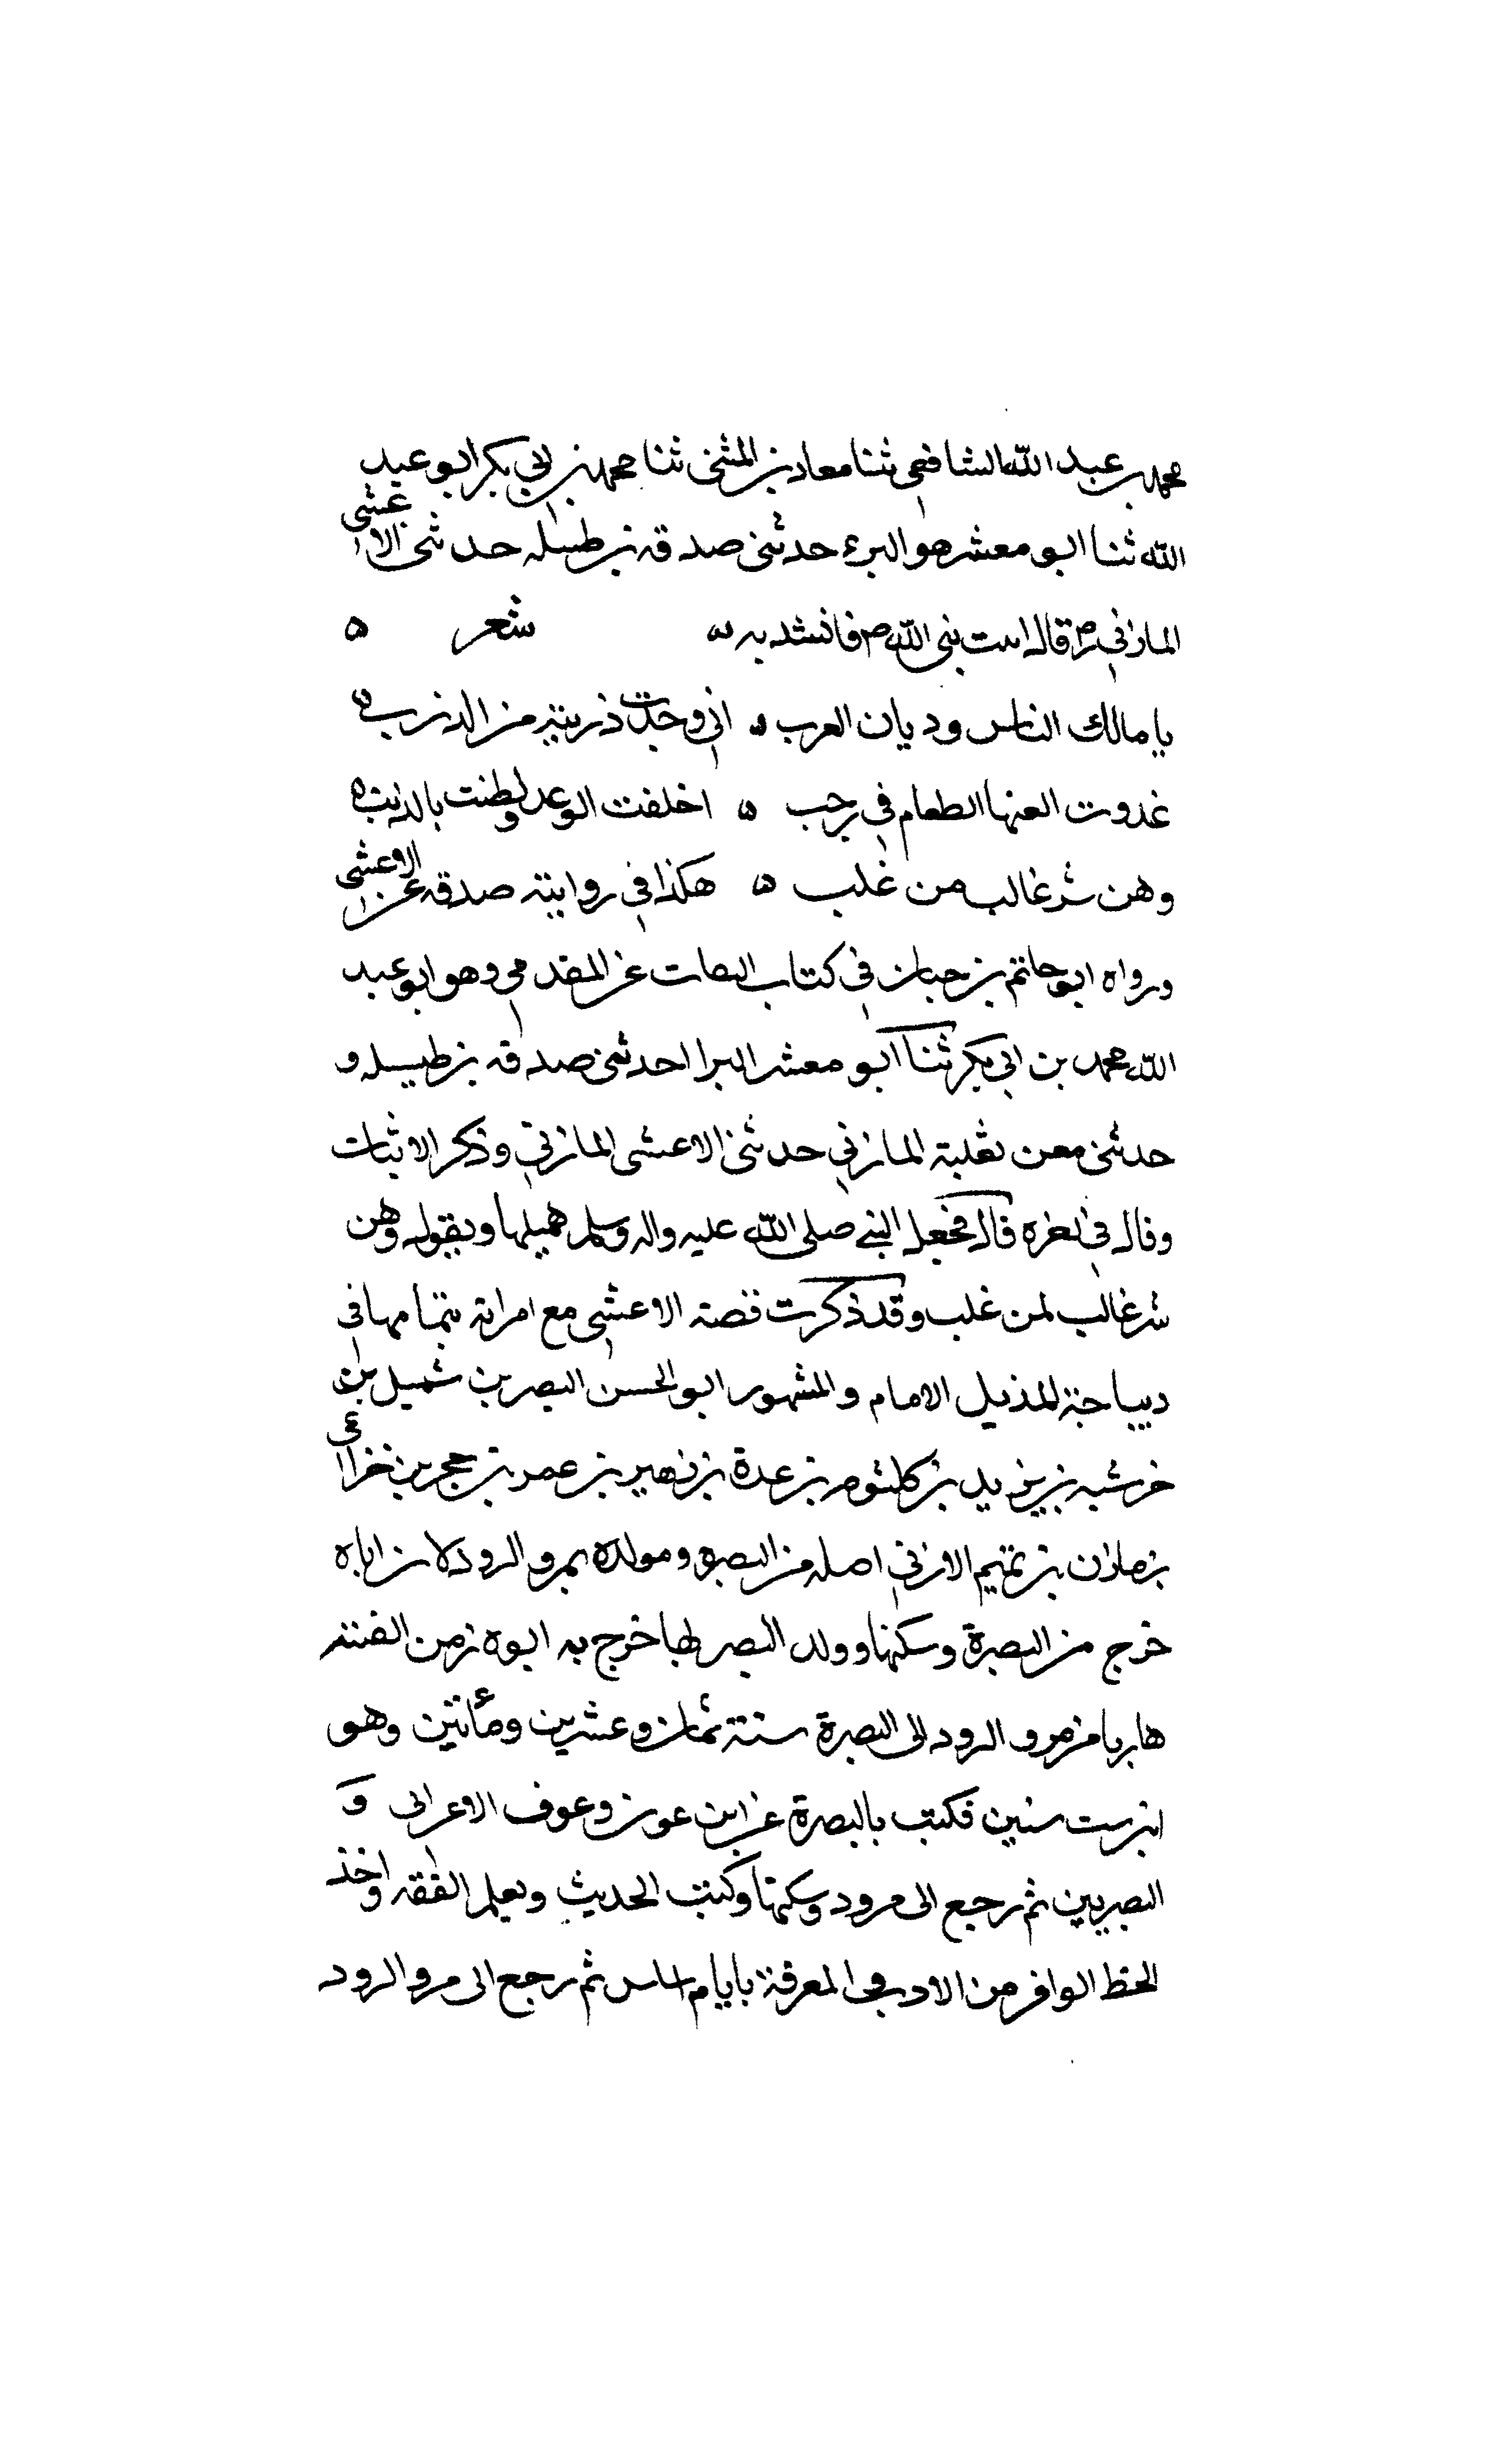 محمد بن عبد الله الشافعي ثنا معاد بن المثنى ثنا محمد بن ابي بكر ابو عبد
الله ثنا ابو معشر هو البرء حدثني صدقه بن طيسله حدثني الاعشى
المازني رض قال اتيت نبي الله ص فانشدته شعر
يا مالك الناس وديان العرب ه اني وجدت ذريته من الذرب ه
غدوت العنها الطعام في رجب ه اخلفت الوعد ولطت بالذنب ه
وهن شر غالب من غلب ه هكذا في روايته صدقه عن الاعشى
ورواه ابو حاتم بن حبان في كتاب الثقات عن المقدمي وهو ابو عبد
الله محمد بن ابي بكر ثنا ابو معشر البرا احدثني صدقه بن طيسله و
حدثني معن ثعلبة المازني حدثني الاعشى المازني وذكر الابيات
وقال في اخره قال فجعل النبي صلى الله عليه واله وسلم يميلها ويقول وهن
شر غالب لمن غلب وقد ذكرت قصة الاعشى مع امراته بتمامها في
ديباجة المذيل الامام والمشهور ابو الحسن النصر بن شميل بن
خرشبه بن يزيد بن كلثوم بن عدة بن زهير بن عمر بن حجر بن خزاعي
بن مازن بن تميم الازني اصله من البصره ومولده بمرو الرود لان اباه
خرج من البصرة وسكنها وولد النصر بها خرج به ابوه زمن الفتنه
هاربا من مرو الرود الى البصرة سنة ثمان وعشرين ومأتين وهو
ابن ست سنين فكتب بالبصرة عن ابن عون وعوف الاعرابي و
البصريين ثم رجع الى مرود وسكنها وكتب الحديث وتعلم الفقه واخذ
الحظ الوافر من الادب والمعرفة بايام الناس ثم رجع الى مرو الرود